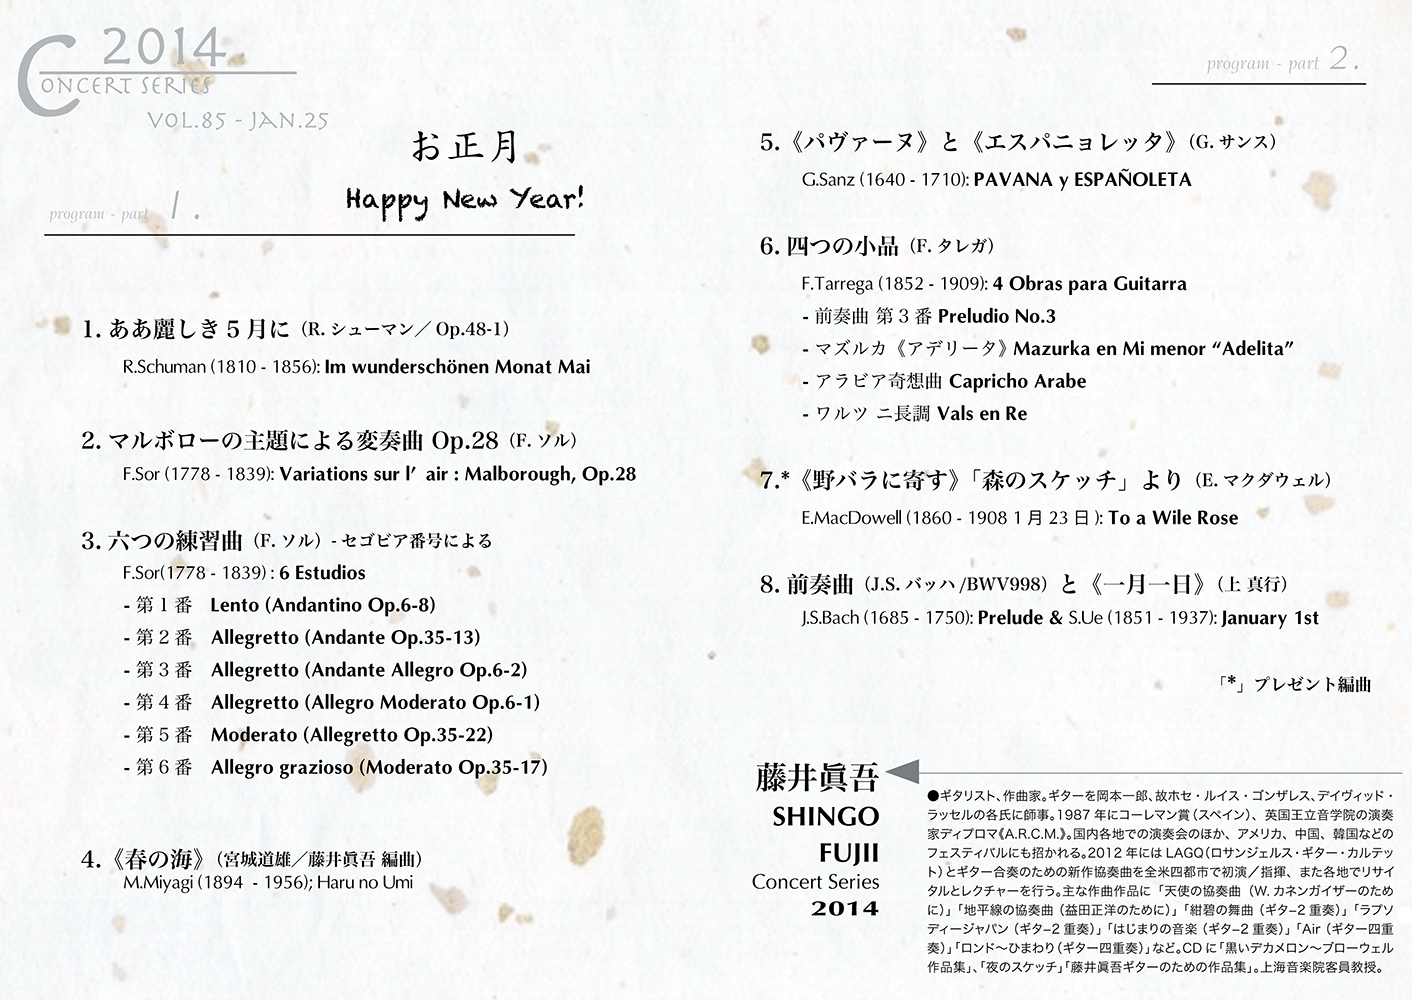 2014
CONCERT SERIES
VOL.85 - JAN.25
お正月
Happy New Year!
program - part 1.
1. ああ麗しき 5 月に（R. シューマン／ Op.48-1）
R.Schuman (1810 - 1856): Im wunderschönen Monat Mai
2. マルボローの主題による変奏曲 Op.28（F. ソル）
F.Sor (1778 - 1839): Variations sur l’ air : Malborough, Op.28
3. 六つの練習曲（F. ソル）- セゴビア番号による
F.Sor(1778 - 1839) : 6 Estudios
- 第 1 番　Lento (Andantino Op.6-8)
- 第 2 番　Allegretto (Andante Op.35-13)
- 第 3 番　Allegretto (Andante Allegro Op.6-2)
- 第 4 番　Allegretto (Allegro Moderato Op.6-1)
- 第 5 番　Moderato (Allegretto Op.35-22)
- 第 6 番　Allegro grazioso (Moderato Op.35-17)
4.《春の海》（宮城道雄／藤井眞吾 編曲）
M.Miyagi (1894 - 1956); Haru no Umi
program - part 2.
5.《パヴァーヌ》と《エスパニョレッタ》（G. サンス）
G.Sanz (1640 - 1710): PAVANA y ESPAÑOLETA
6. 四つの小品（F. タレガ）
F.Tarrega (1852 - 1909): 4 Obras para Guitarra
- 前奏曲 第 3 番 Preludio No.3
- マズルカ《アデリータ》Mazurka en Mi menor “Adelita”
- アラビア奇想曲 Capricho Arabe
- ワルツ ニ長調 Vals en Re
7.*《野バラに寄す》「森のスケッチ」より（E. マクダウェル）
E.MacDowell (1860 - 1908 1 月 23 日 ): To a Wile Rose
8. 前奏曲（J.S. バッハ /BWV998）と《一月一日》（上 真行）
J.S.Bach (1685 - 1750): Prelude & S.Ue (1851 - 1937): January 1st
「*」プレゼント編曲
藤井眞吾
SHINGO
FUJII
Concert Series
2014
●ギタリスト、作曲家。ギターを岡本一郎、故ホセ・ルイス・ゴンザレス、デイヴィッド・
ラッセルの各氏に師事。1987 年にコーレマン賞（スペイン）、英国王立音学院の演奏
家ディプロマ《A.R.C.M.》。国内各地での演奏会のほか、アメリカ、中国、韓国などの
フェスティバルにも招かれる。2012 年には LAGQ（ロサンジェルス・ギター・カルテッ
ト）とギター合奏のための新作協奏曲を全米四都市で初演／指揮、また各地でリサイ
タルとレクチャーを行う。主な作曲作品に「天使の協奏曲（W. カネンガイザーのため
に）」「地平線の協奏曲（益田正洋のために）」「紺碧の舞曲（ギター2 重奏）」「ラプソ
ディージャパン（ギター2 重奏）」「はじまりの音楽（ギター2 重奏）」「Air（ギター四重
奏）」「ロンド〜ひまわり（ギター四重奏）」など。CD に「黒いデカメロン〜ブローウェル
作品集」、「夜のスケッチ」「藤井眞吾ギターのための作品集」。上海音楽院客員教授。